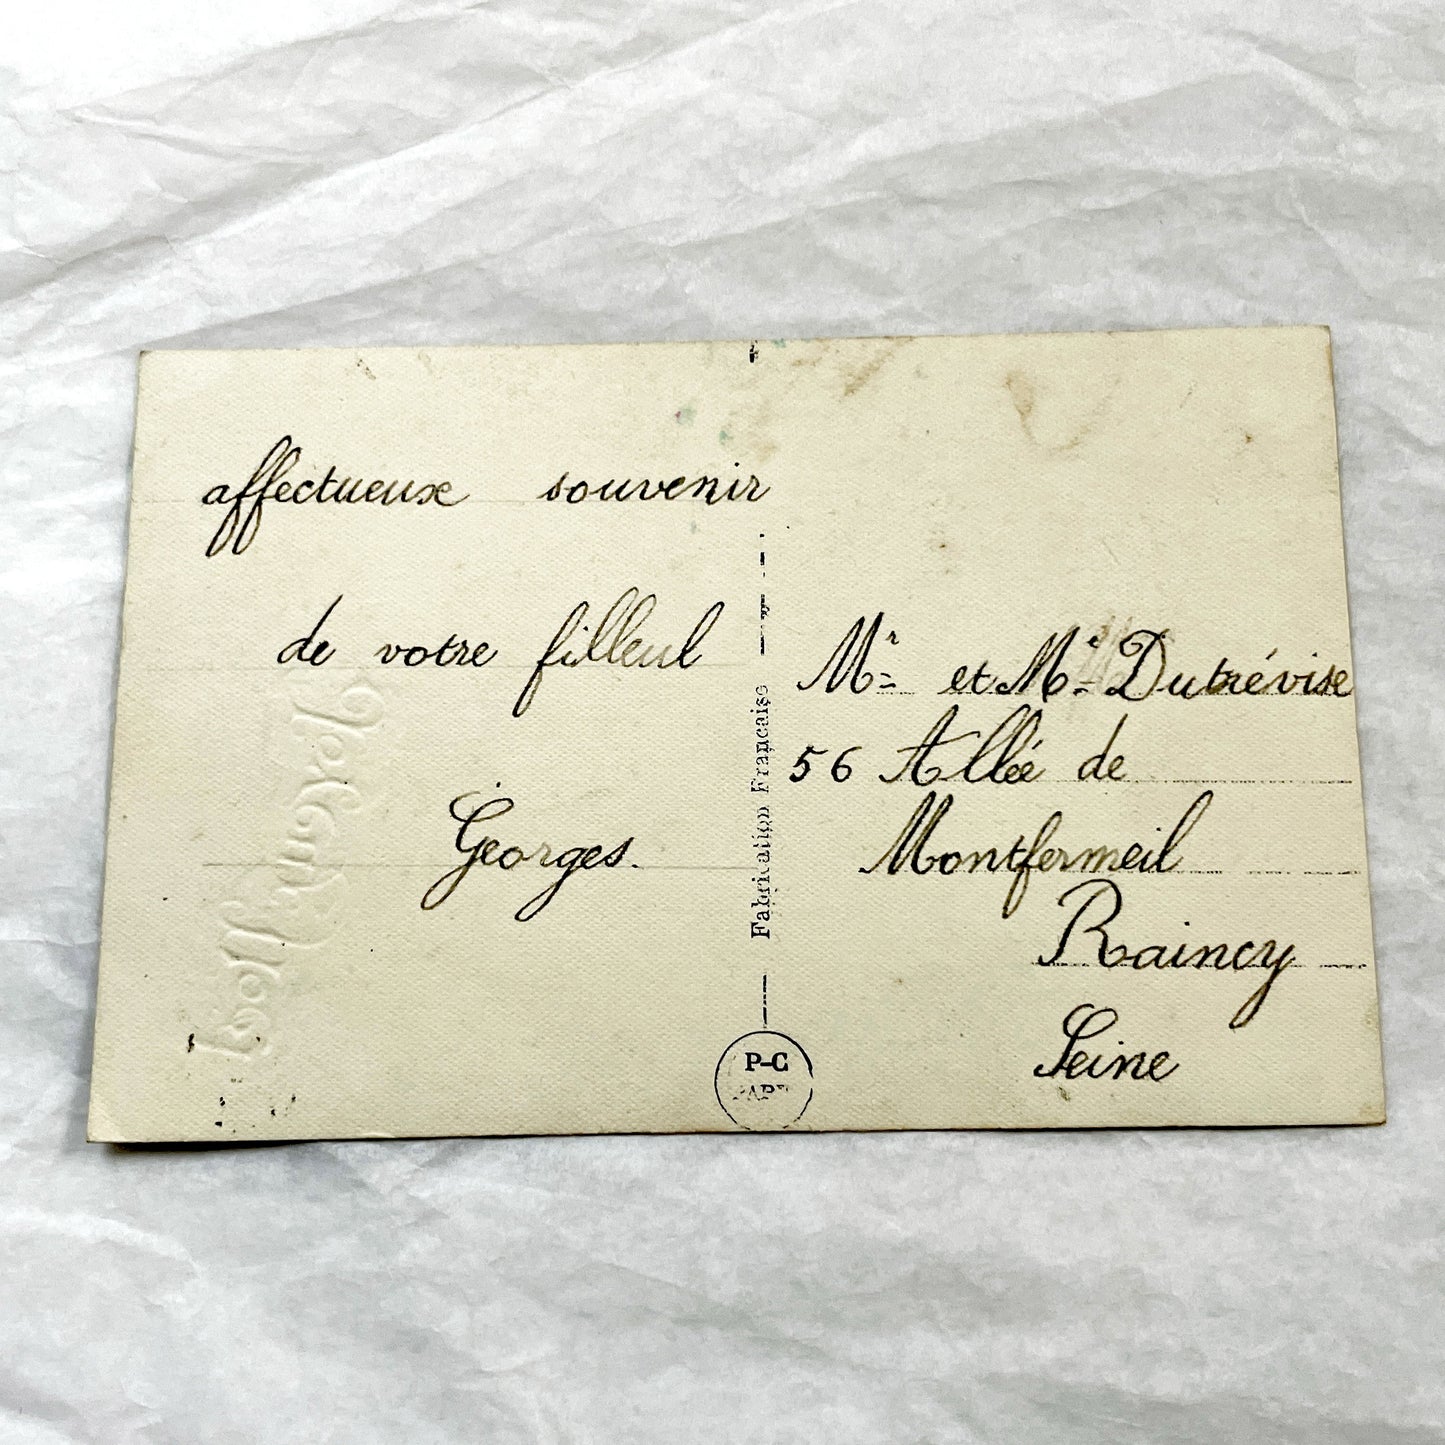 affectueux souvenir
de votre filleul
Georges.
Fabrication Française
P-C
Mr et Me Dutrévise
56 Allée de
Montfermeil
Raincy
Seine